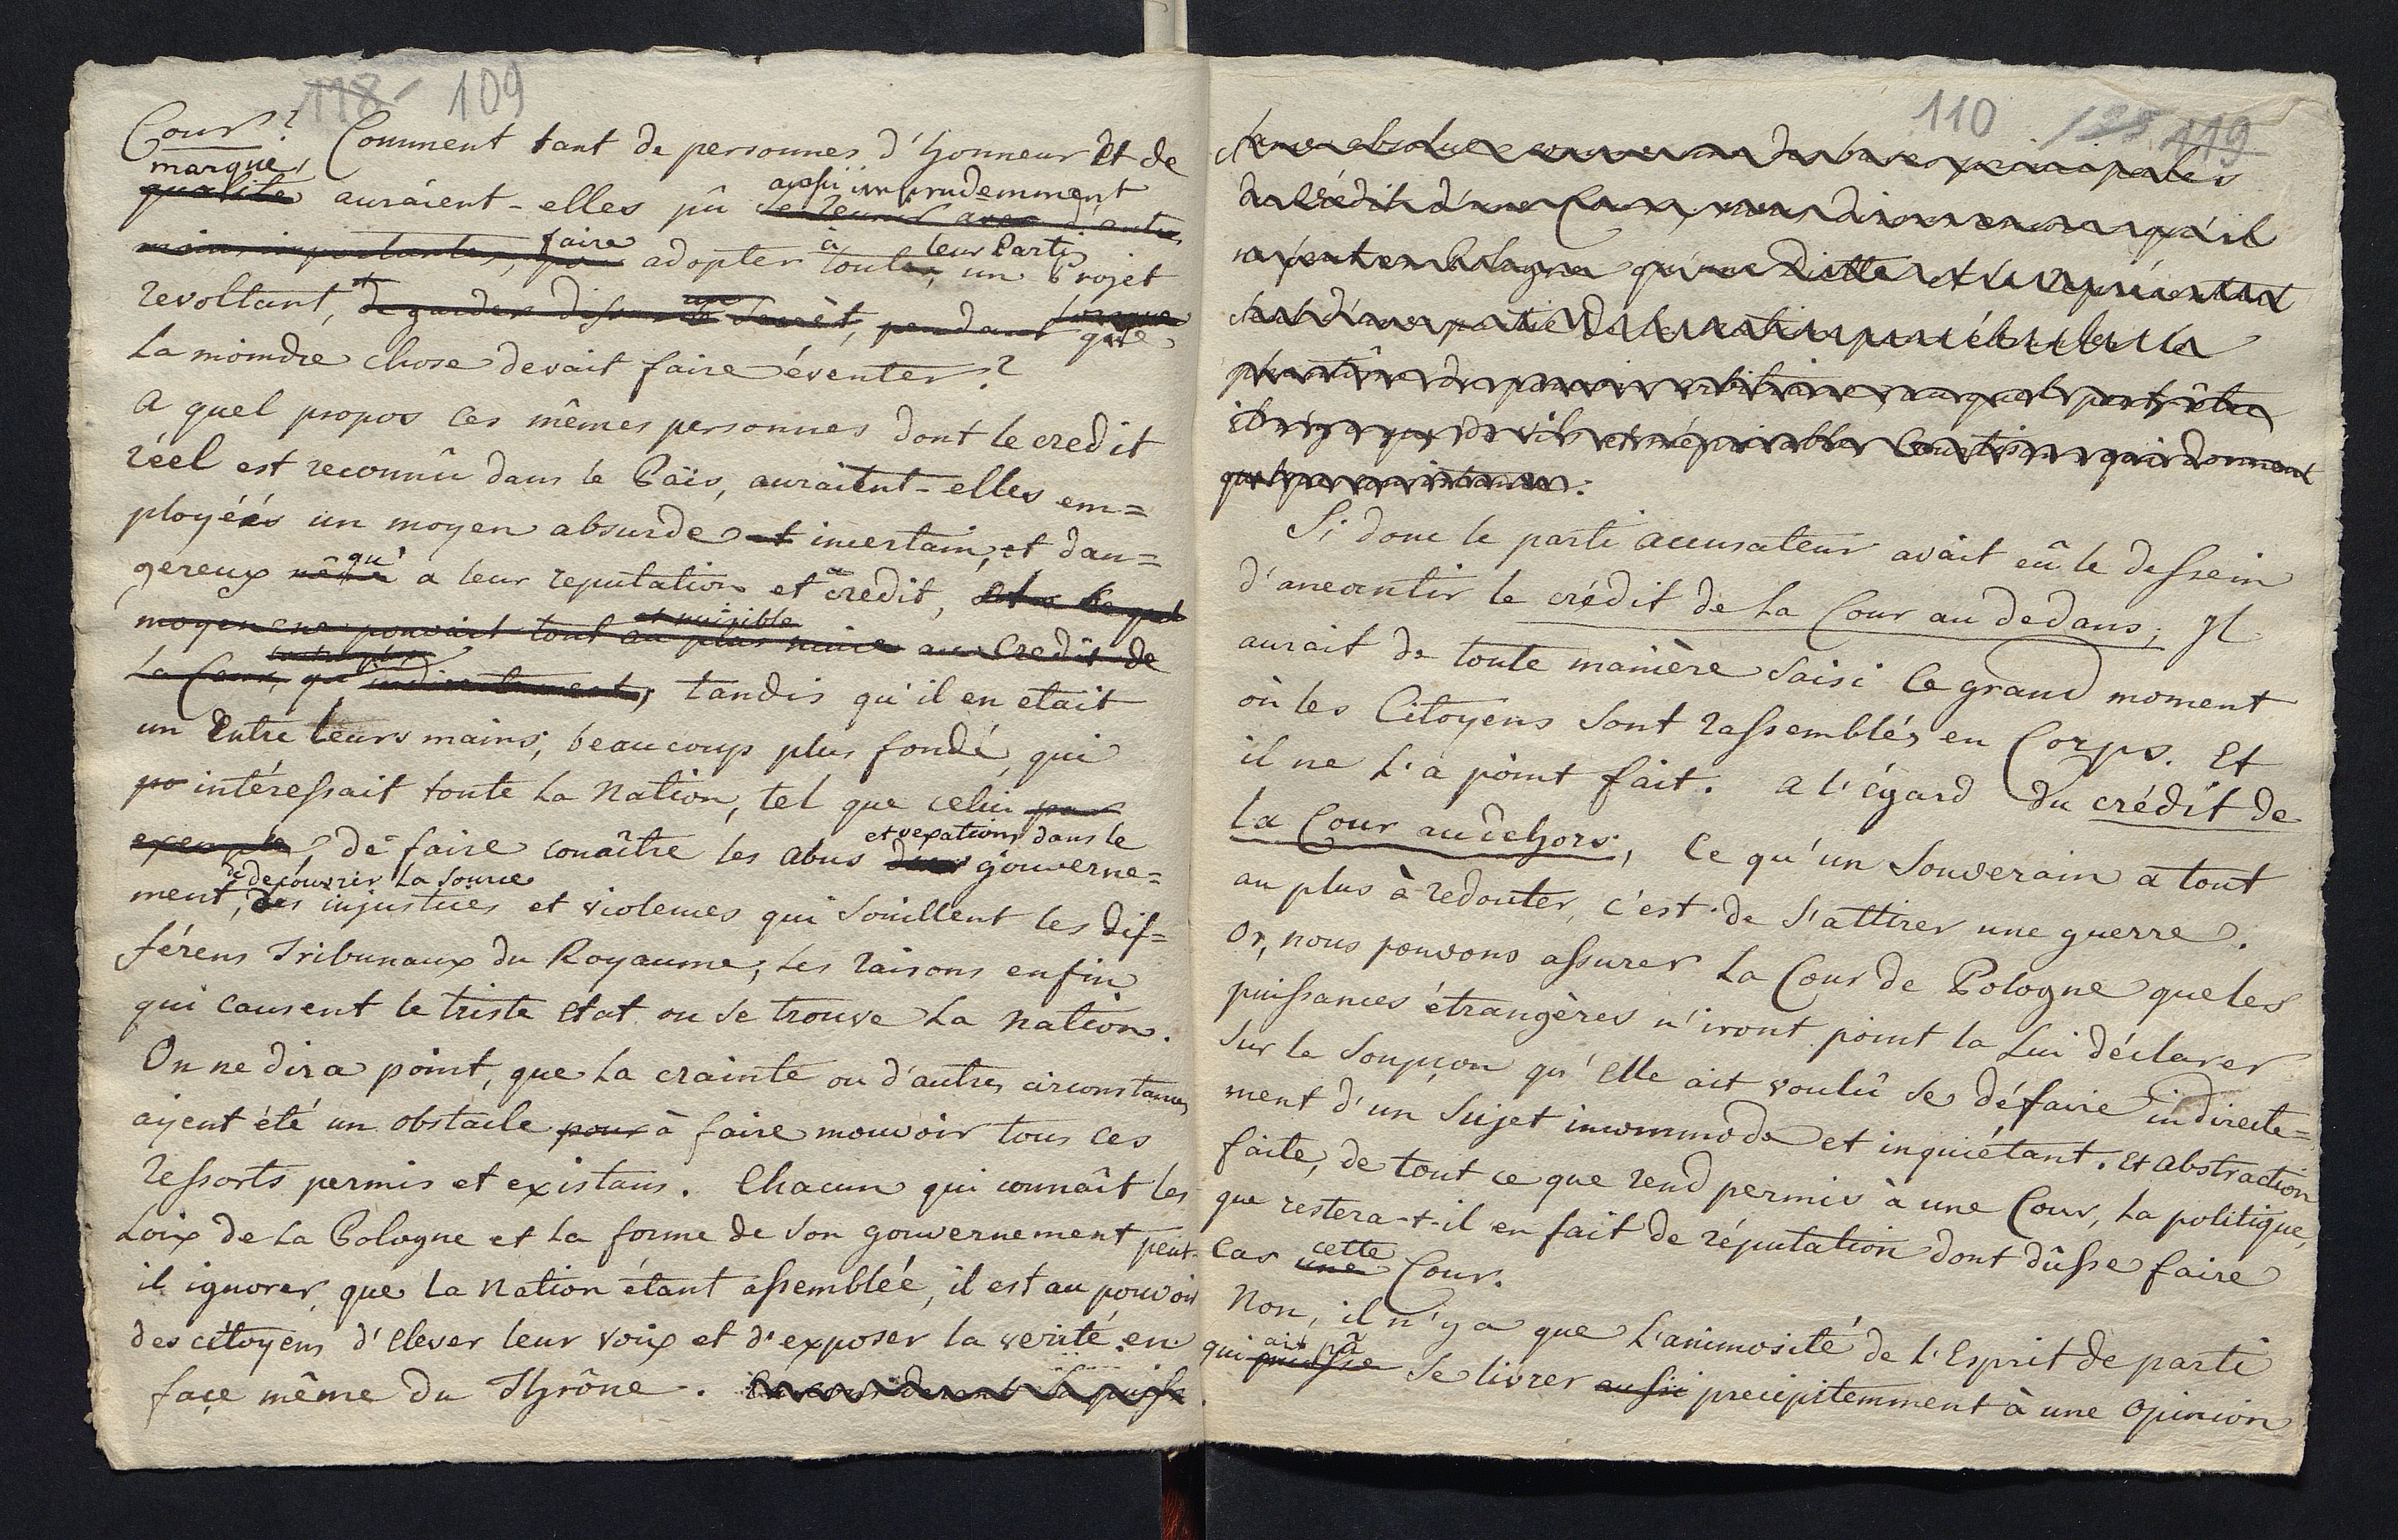 118 109
Cour? Comment tant de personnes d'honneur Et de
marque,
qualité auraient-elles pû aussi imprudemment
se reunir avec d'autres
moins importantes, faire adopter à toute, leur Parti, un Projet
revoltant, et de garder dessus un secrèt, pendant lorsque que
La moindre chose devait faire éventer?
A quel propos ces mêmes personnes dont le credit
réel est reconnû dans le Païs, auraitent-elles em=
ployéés un moyen absurde et incertain, et dan=
gereux qu' a leur reputation et a credit,
moyen ne pouvait tout au plus et nuisible nuire au Credit de
La Cour, qu'indirectement; tandis qu'il en etait
un Entre leurs mains, beaucoup plus fondé, qui
po intéressait toute La Nation, tel que celui par
exemple, de faire conaître les abus et vexations dans le gouverne=
ment, de decouvrir La source des injustices et violences qui souillent les dif=
férens Tribunaux du Royaume, Les raisons enfin
qui causent le triste Etat ou se trouve La nation.
On ne dira point, que La crainte ou d'autres circonstances
ayent été un obstacle pour à faire mouvoir tous ces
ressorts permis et existans. Chacun qui connaît les
Loix de La Pologne et La forme de son gouvernement peut-
il ignorer, que La Nation étant assemblée, il est au pouvoir
des citoyens d'Elever leur voix et d'exposer la verité en
façe même du Thrône.
110 119
du Crédit d'une Cour, nous dirons encore qu'il
Si donc le parti accusateur avait eû le dessein
d'aneantir le crédit de La Cour au dedans, Il
aurait de toute manière saisi Ce grand moment
où les Citoyens sont rassemblés en Corps. Et
il ne L'a point fait. A l'égard du crédit de
La Cour au dehors, Ce qu'un souverain a tout
au plus à redouter, c'est de s'attirer une guerre.
Or, nous pouvons assurer La Cour de Pologne que les
puissances étrangères n'iront point la Lui déclarer
sur le soupçon qu'Elle ait voulû se défaire indirecte=
ment d'un sujet incommode et inquiétant. Et Abstraction
faite, de tout ce que rend permis à une Cour, La politique,
que restera-t-il en fait de réputation dont dûsse faire
Cas cette une Cour.
Non, il n'y a que L'animosité de l'Esprit de parti
qui ait pû puisse se livrer aussi precipitemment à une Opinion